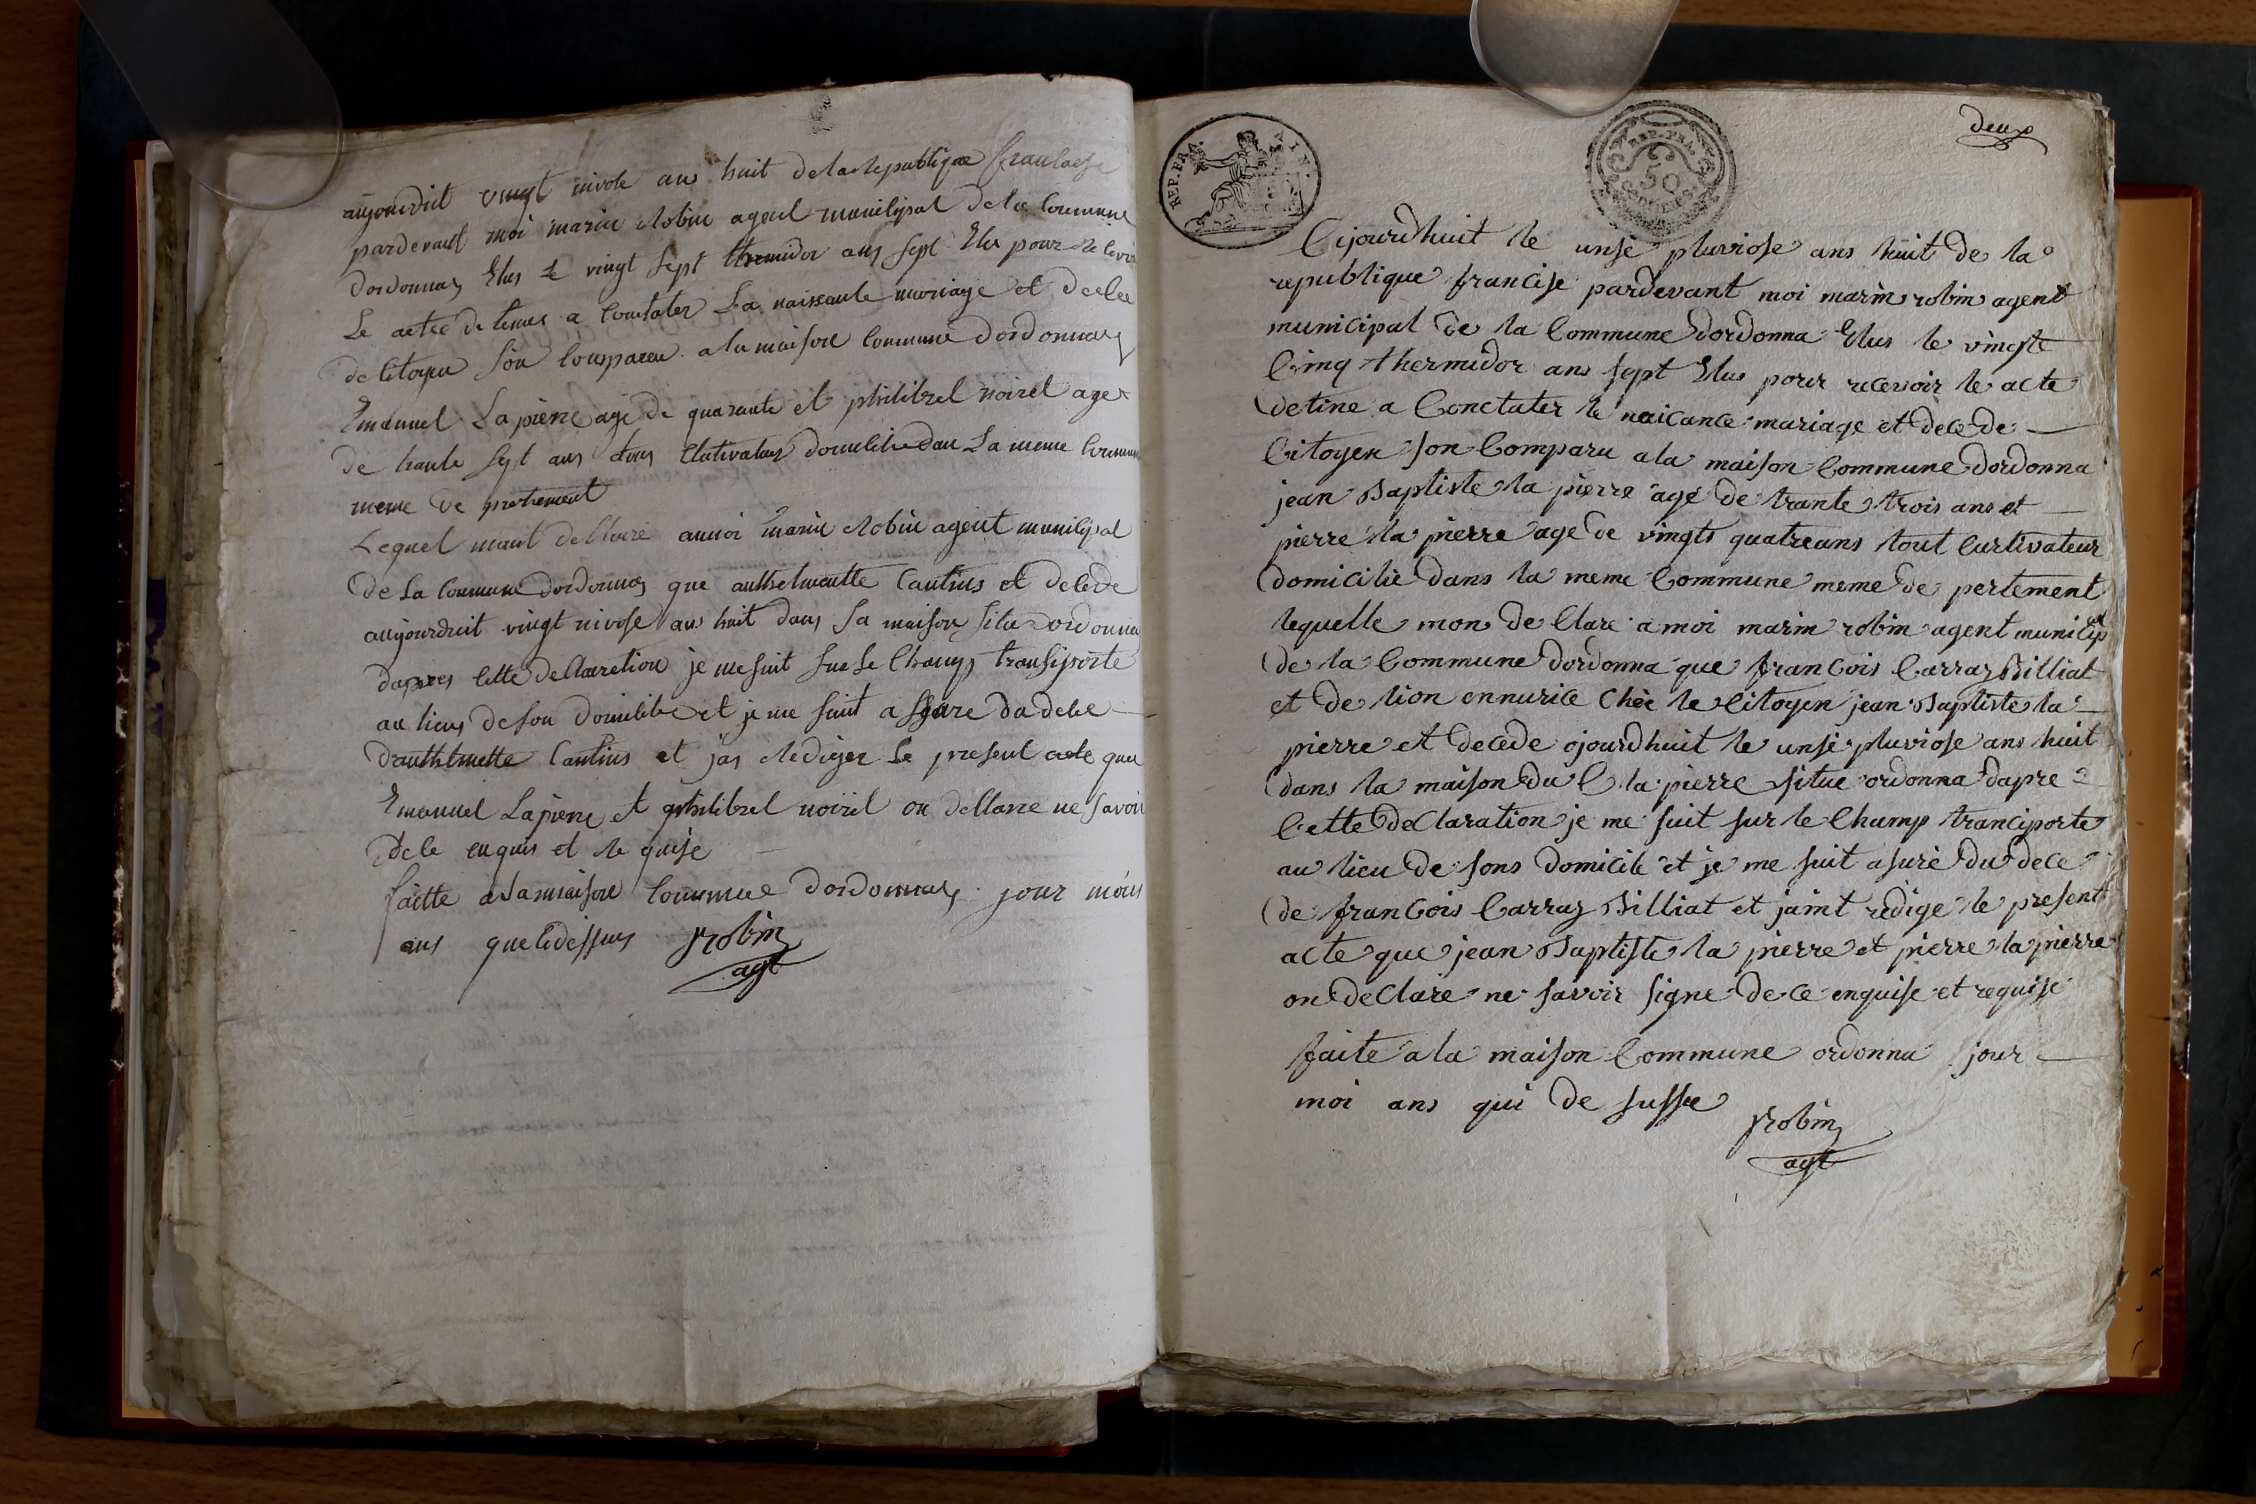 aujourduit vingt nivose ans huit de la republique francaise
pardevant moi marin Robin agent municipal de la Commune
dordonnas Elus le vingt sept thermidor ans sept Elu pour
Le actes de tines a Constater La naissante mariage et decee
de Citoyen son Compareu a la maison Commune dordonnas
Emanuel Lapierre age de quarante et philibrel noirel age
de trante sept ans tous Cultivateur domicilie dan La meme Commune
meme de partement
Lequel mant declare amoi marin Robin agent municipal
de La Commune dordonnas que anthelmette Cantins et decede
aujourdruit vingt nivose ans huit dans Sa maison situ dordonna
dapres Cette declaretion je me suit sur Le Champ transiporte
au lieus de son domicile et je me suit assure da dece
danthelmette Cantins et jas Rediger Le present acte que
Emanuel Lapierre et philibrel noirel on declare ne savoir
de ce enquis et Re quise
faitte a La maison Commune dordonnas jour mois
ans que cidessus Robin
agt
REP. FRA.
REP. FRA.
50
deux
Cejourdhuit le unse pluviose ans huit de la
republique francise pardevant moi marin robin agent
municipal de la Commune dordonna Elus le vingte
Cinq thermidor ans sept Elus pour recevoir le acte
detine a Conctater le naicance mariage et decede
Citoyen son Comparu a la maison Commune dordonna
jean Baptiste la pierre age de trante trois ans et
pierre la pierre age de vingts quatre ans tout Curtivateur
domicilie dans la meme Commune meme de pertement
lequelle mon de Clare a moi marin robin agent municip
de la Commune dordonna que francois Carraz Billiat
et de lion ennurice Chée le Citoyen jean Baptiste la
pierre et decede ojourdhuit le unse pluviose ans huit
dans la maison du C. la pierre situe ordonna dapre
Cette declaration je me suit sur le Champ tranciporte
au lieu de sons domicile et je me suit asuré du dece
de francois Carraz Billiat et jaint redige le present
acte que jean Baptiste la pierre et pierre la pierre
on declare ne savoir signe de ce enquise et requise
faite a la maison Commune ordonna jour
moi ans qui de susse
Robin
agt